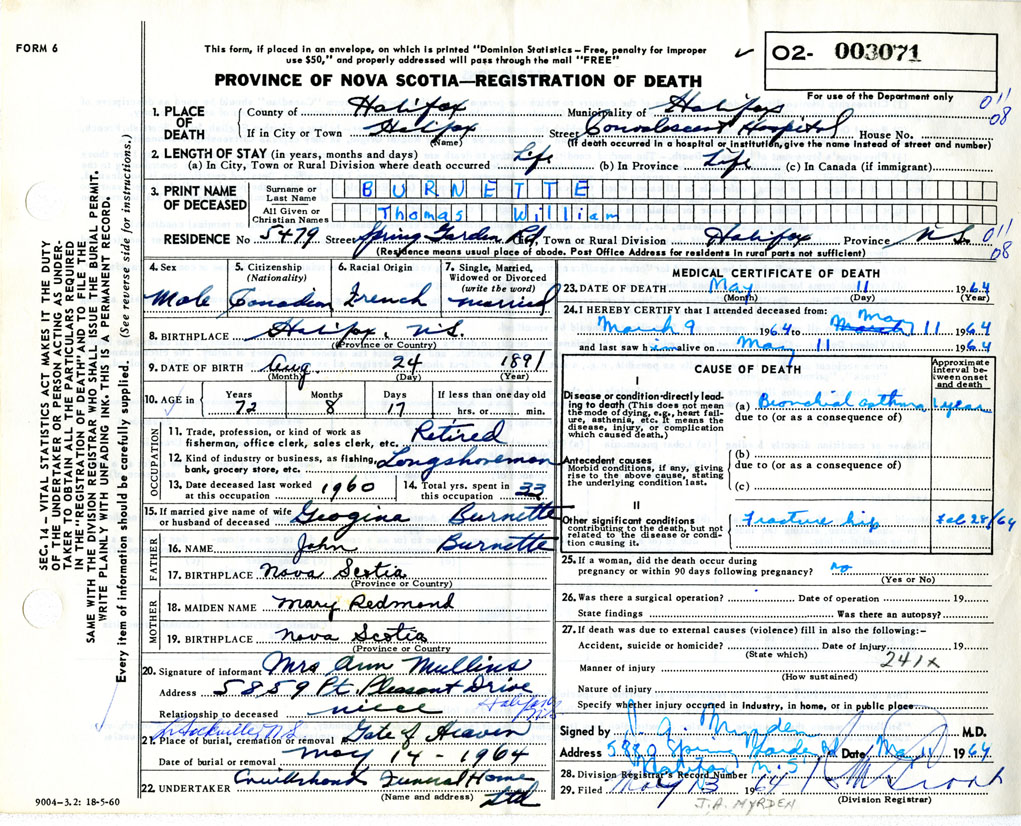 FORM 6
This form, if placed in an envelope, on which is printed "Dominion Statistics – Free, penalty for improper
use $50," and properly addressed will pass through the mail "FREE"
✓ O2- 003071
PROVINCE OF NOVA SCOTIA—REGISTRATION OF DEATH
For use of the Department only
011
08
1. PLACE OF DEATH
County of Halifax Municipality of Halifax
If in City or Town Halifax Street Convalescent Hospital House No.
(Name) (If death occurred in a hospital or institution, give the name instead of street and number)
2. LENGTH OF STAY (in years, months and days)
(a) In City, Town or Rural Division where death occurred Life (b) In Province Life (c) In Canada (if immigrant)
3. PRINT NAME OF DECEASED
Surname or Last Name BURNETTE
All Given or Christian Names Thomas William
RESIDENCE No 5479 Street Spring Garden Rd, Town or Rural Division Halifax Province N.S. 011
08
(Residence means usual place of abode. Post Office Address for residents in rural parts not sufficient)
4. Sex 5. Citizenship (Nationality) 6. Racial Origin 7. Single, Married, Widowed or Divorced (write the word)
Male Canadian French married
8. BIRTHPLACE Halifax, N.S.
(Province or Country)
9. DATE OF BIRTH Aug. 24 1891
(Month) (Day) (Year)
10. AGE in Years Months Days If less than one day old
72 8 17 hrs. or min.
OCCUPATION
11. Trade, profession, or kind of work as
fisherman, office clerk, sales clerk, etc. Retired
12. Kind of industry or business, as fishing,
bank, grocery store, etc. Longshoreman
13. Date deceased last worked at this occupation 1960 14. Total yrs. spent in this occupation 33
15. If married give name of wife
or husband of deceased Geogina Burnette
FATHER
16. NAME John Burnette
17. BIRTHPLACE Nova Scotia
(Province or Country)
MOTHER
18. MAIDEN NAME Mary Redmond
19. BIRTHPLACE Nova Scotia
(Province or Country)
20. Signature of informant Mrs Ann Mullins
Address 5859 Pt. Pleasant Drive
Halifax N.S.
Relationship to deceased niece
Sackville, N.S.
21. Place of burial, cremation or removal Gate of Heaven
Date of burial or removal May 14 - 1964
22. UNDERTAKER Cruikshank Funeral Home
(Name and address) Ltd
9004–3.2: 18-5-60
MEDICAL CERTIFICATE OF DEATH
23. DATE OF DEATH May 11 1964
(Month) (Day) (Year)
24. I HEREBY CERTIFY that I attended deceased from:
March 9 1964 to March May 11 1964
and last saw him alive on May 11 1964
CAUSE OF DEATH
Approximate interval between onset and death
I
Disease or condition directly leading to death (This does not mean
the mode of dying, e.g., heart failure, asthenia, etc. It means the
disease, injury, or complication
which caused death.)
(a) Bronchial asthma years
due to (or as a consequence of)
Antecedent causes
Morbid conditions, if any, giving
rise to the above cause, stating
the underlying condition last.
(b)
due to (or as a consequence of)
(c)
II
Other significant conditions
contributing to the death, but not
related to the disease or condition causing it.
Fracture hip Feb 28/64
25. If a woman, did the death occur during
pregnancy or within 90 days following pregnancy? no
(Yes or No)
26. Was there a surgical operation? Date of operation 19
State findings Was there an autopsy?
27. If death was due to external causes (violence) fill in also the following:–
Accident, suicide or homicide? Date of injury 19
(State which) 241x
Manner of injury
(How sustained)
Nature of injury
Specify whether injury occurred in Industry, in home, or in public place
Signed by J. A. Myrden M.D.
Address 5880 Spring Garden Rd Date May 11 1964
Halifax N.S.
28. Division Registrar's Record Number
29. Filed May 13 1964
(Division Registrar)
J.A. MYRDEN
SEC. 14— VITAL STATISTICS ACT MAKES IT THE DUTY
OF THE UNDERTAKER OR PERSON ACTING AS UNDERTAKER
TO OBTAIN ALL THE PARTICULARS REQUIRED
IN THE "REGISTRATION OF DEATH" AND TO FILE THE
SAME WITH THE DIVISION REGISTRAR WHO SHALL ISSUE THE BURIAL PERMIT.
WRITE PLAINLY WITH UNFADING INK. THIS IS A PERMANENT RECORD.
Every item of information should be carefully supplied. (See reverse side for instructions.)